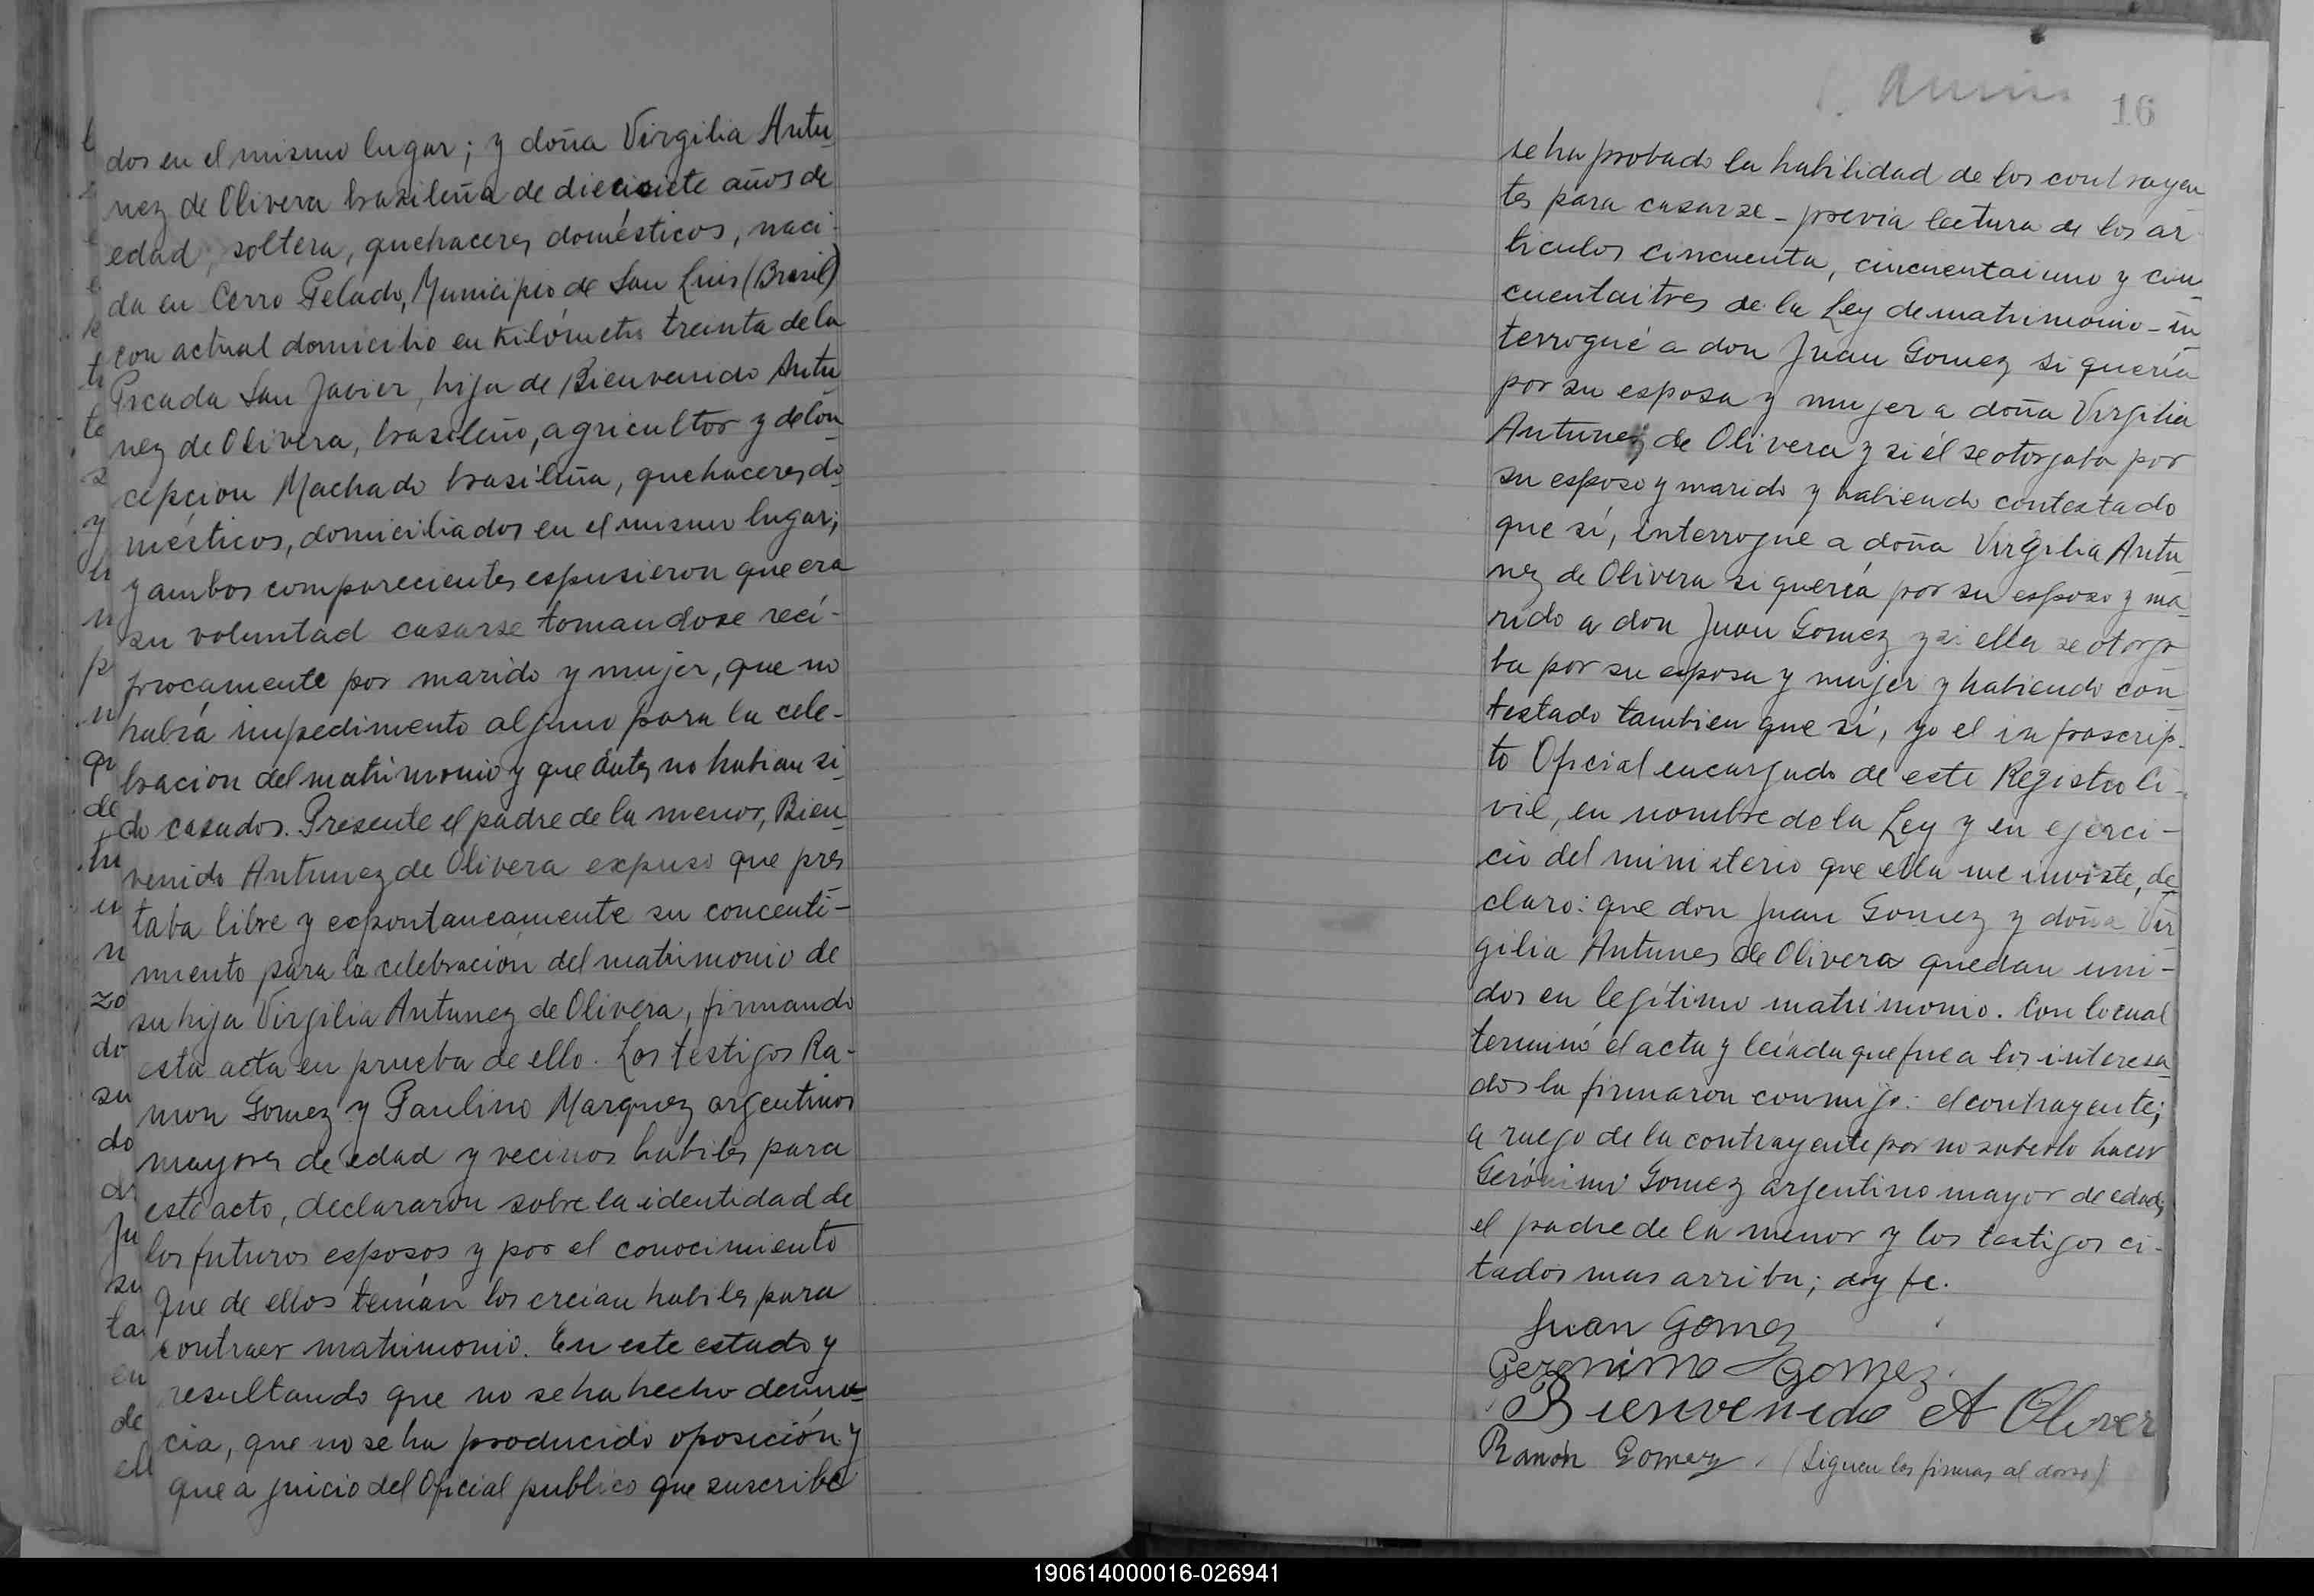 dos en el mismo lugar; y doña Virgilia Antu
nez de Olivera brasileña de diecisiete años de
edad, soltera, quehaceres domésticos, naci-
da en Cerro Pelado, Municipio de San Luis (Brasil)
con actual domicilio en Kilómetro treinta de la
Picada San Javier, hija de Bienvenido Antu
nez de Olivera, brasileño, agricultor y de Con
cepcion Machado brasileña, quehaceres do
mésticos, domiciliados en el mismo lugar;
y ambos comparecientes espusieron que era
su voluntad casarse tomandose reci-
procamente por marido y mujer, que no
habia impedimento alguno para la cele-
bracion del matrimonio y que antes no habian si
do casados. Presente el padre de la menor, Bien
venido Antunez de Olivera expuso que pres
taba libre y espontaneamente su concenti-
miento para la celebración del matrimonio de
su hija Virgilia Antunez de Olivera, firmando
esta acta en prueba de ello. Los testigos Ra-
mon Gomez y Paulino Marquez argentinos
mayores de edad y vecinos habiles para
este acto, declararon sobre la identidad de
los futuros esposos y por el conocimiento
que de ellos tenían los creian habiles para
contraer matrimonio. En este estado y
resultando que no se ha hecho denun-
cia, que no se ha producido oposición y
que a juicio del Oficial publico que suscribe
16
se ha probado la habilidad de los contrayen
tes para casarse - previa lectura de los ar
ticulos cincuenta, cincuentaiuno y cin
cuentaitres de la Ley de matrimonio - in
terrogué a don Juan Gomez si quería
por su esposa y mujer a doña Virgilia
Antunez de Olivera y si él se otorgaba por
su esposo y marido y habiendo contestado
que sí, interrogué a doña Virgilia Antu
nez de Olivera si quería por su esposo y ma
rido a don Juan Gomez y si ella se otorga
ba por su esposa y mujer y habiendo con
testado tambien que sí, yo el infrascrip-
to Oficial encargado de este Registro Ci-
vil, en nombre de la Ley y en ejerci-
cio del ministerio que ella me inviste, de
claro: que don Juan Gomez y doña Vir
gilia Antunes de Olivera quedan uni-
dos en legítimo matrimonio. Con lo cual
terminó el acta y leída que fue a los interesa
dos la firmaron conmigo: el contrayente;
a ruego de la contrayente por no saberlo hacer
Gerónimo Gomez argentino mayor de edad,
el padre de la menor y los testigos ci-
tados mas arriba; doy fe.
Juan Gomez
Geronimo Gomez.
Bienvenido A Oliver
Ramón Gomez. (Siguen las firmas al dorso)
190614000016-026941